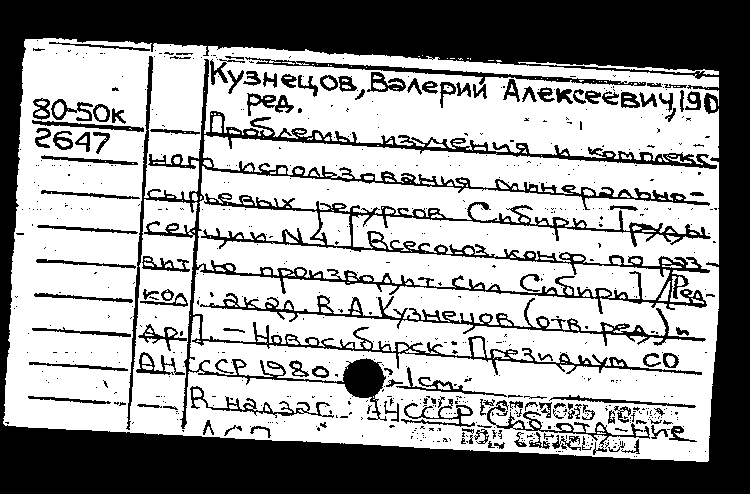 Кузнецов, Валерий Алексеевич, 190
ред.
80-50к
2647
Проблемы изучения и комплекс-
ного использования минерально-
сырьевых ресурсов Сибири: Труды
секции N 4. [Всесоюз. конф. по раз-
витию производит. сил Сибири] /[Ред-
кол.: акад. В.А. Кузнецов (отв. ред.) и
др.]. - Новосибирск: Президиум СО
АН СССР, 1980. 1 см.
В надзаг.: АН СССР Сиб. отд-ние